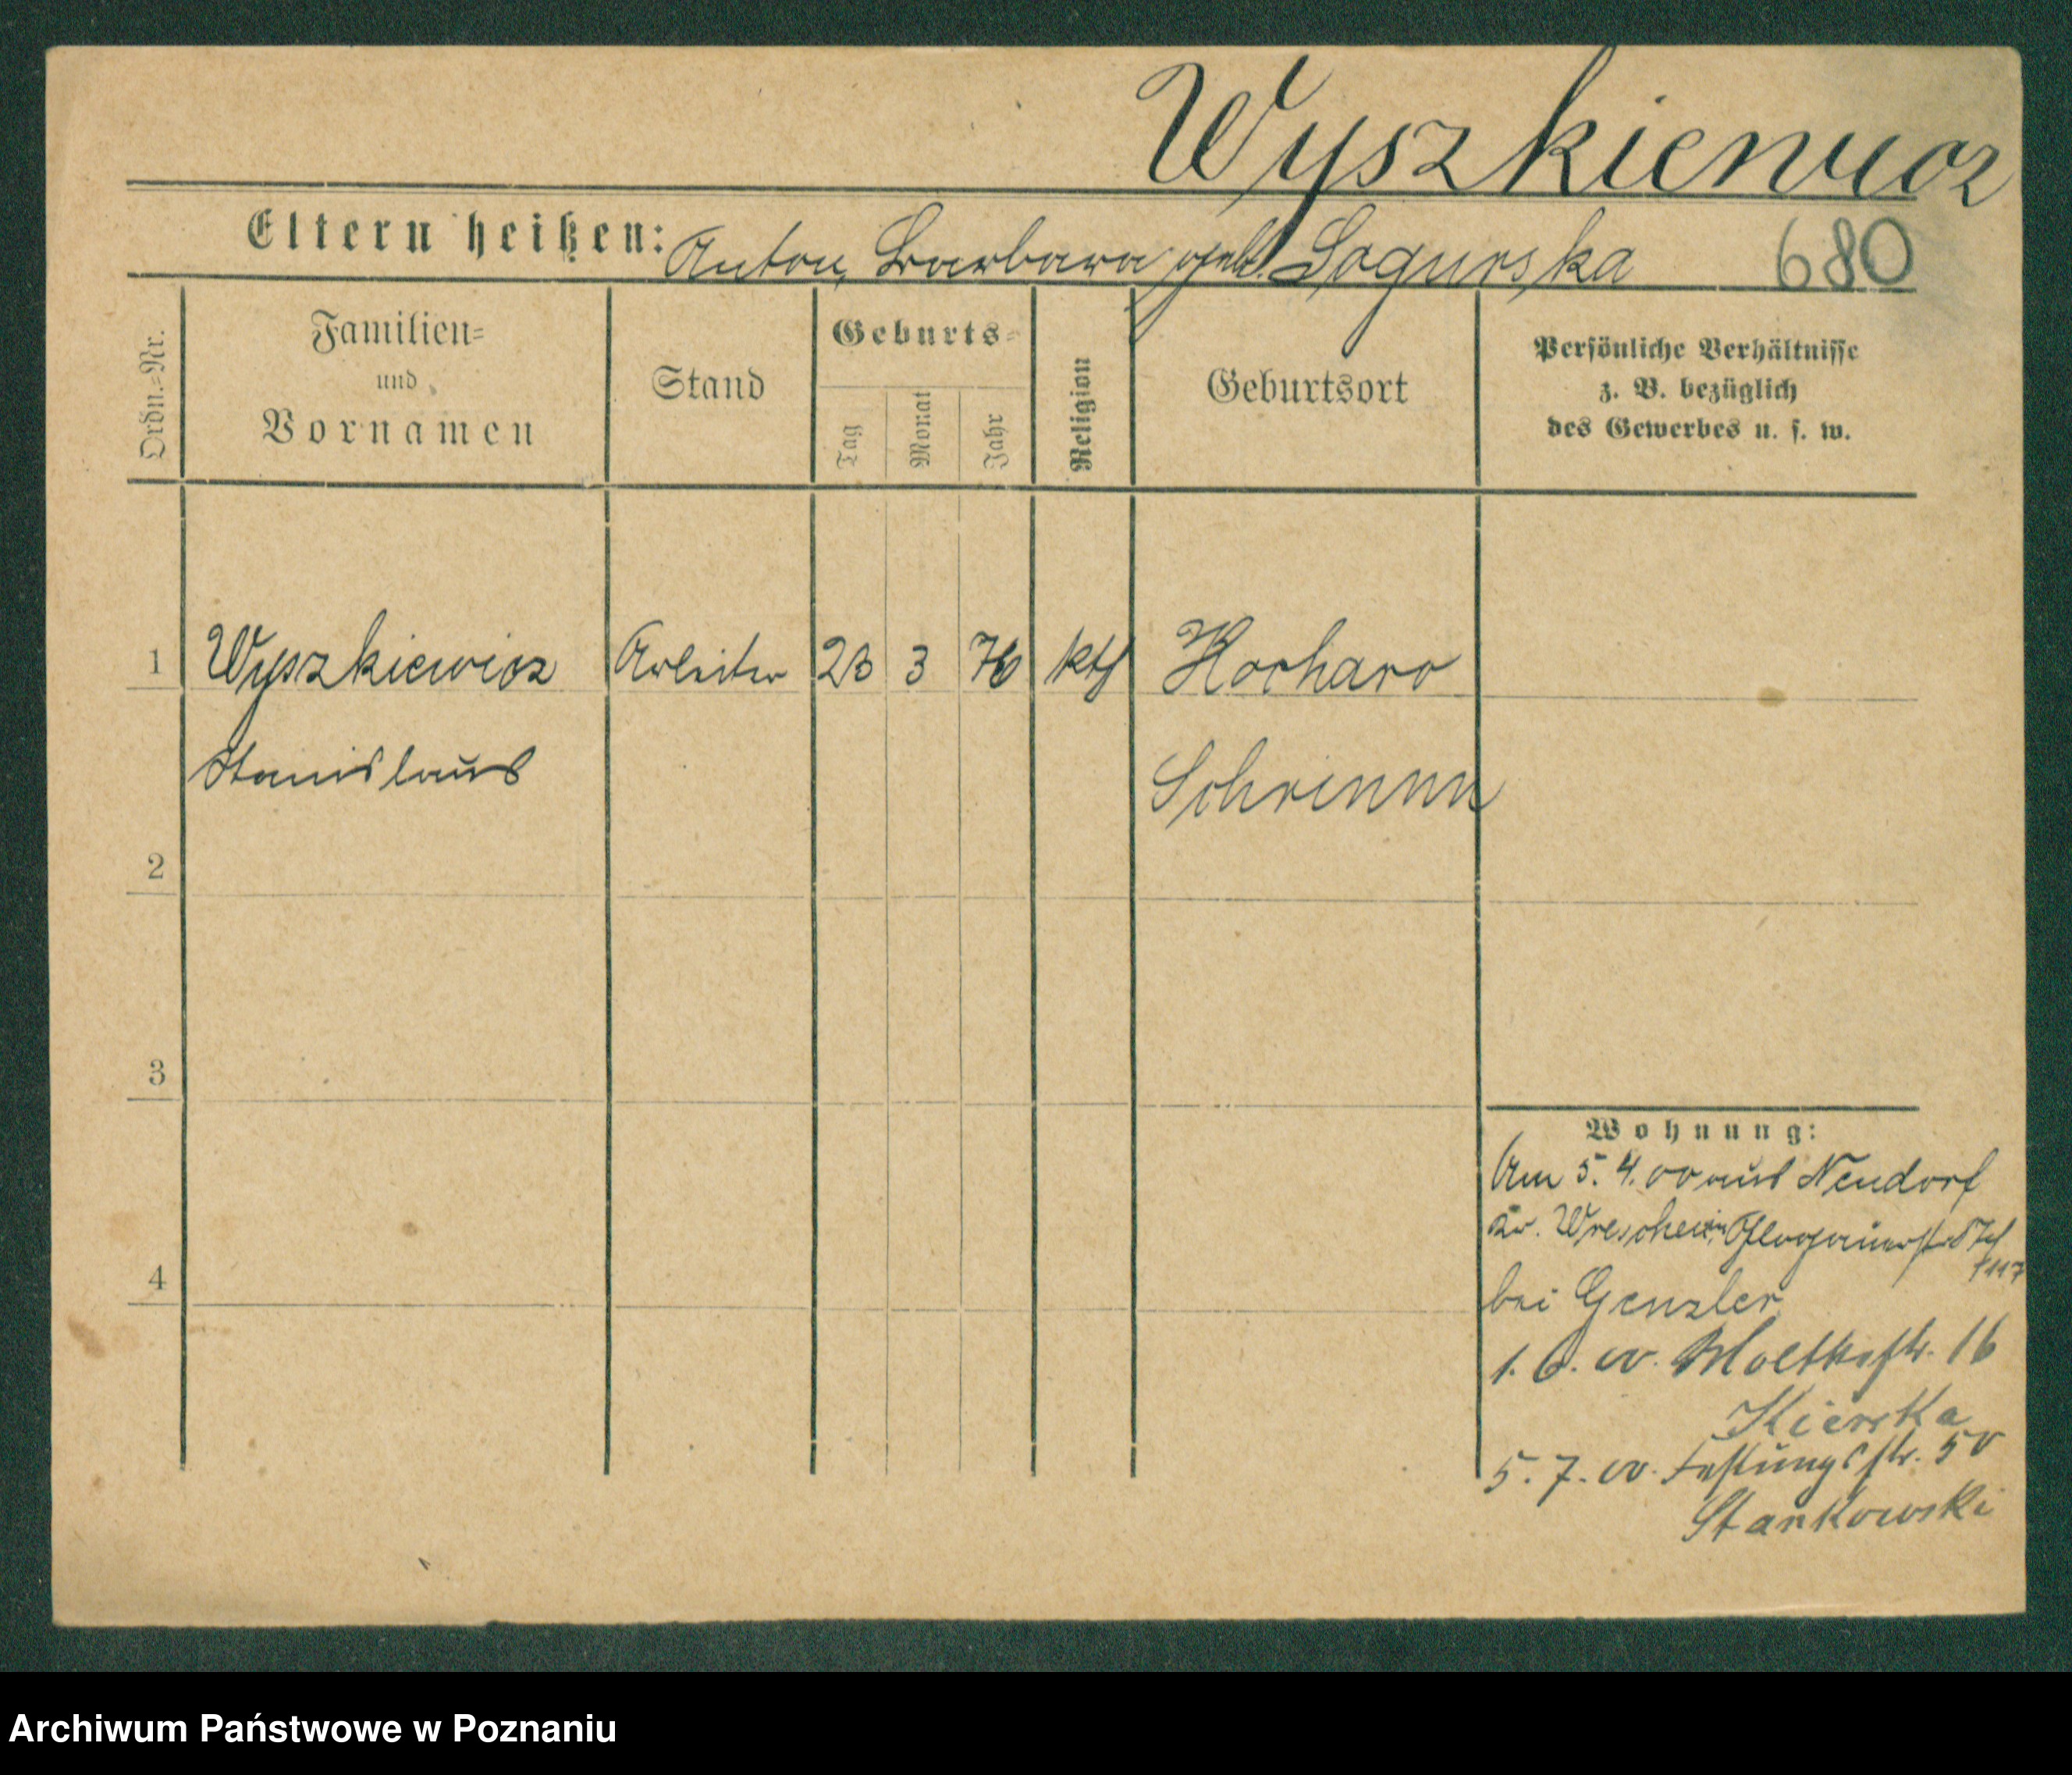 Wyszkiewicz
Eltern heißen: Anton, Barbara geb. Sogurska 680
Ordn.=Nr.
Familien=
und
Vornamen
Stand
Geburts=
Tag
Monat
Jahr
Religion
Geburtsort
Persönliche Verhältnisse
z. B. bezüglich
des Gewerbes u. s. w.
1 Wyszkiewicz Arbeiter 23 3 76 kth Kocharo
Stanislaus Schrimm
2
3
4
Wohnung:
Am 5. 4. 00 aus Neudorf
Kr. Wreschen, Glogauerstr.
bei Genzler
1. 6. 00. Moltkestr. 16
Kierska
5. 7. 00. Festungsstr. 50
Stankowski
Archiwum Państwowe w Poznaniu